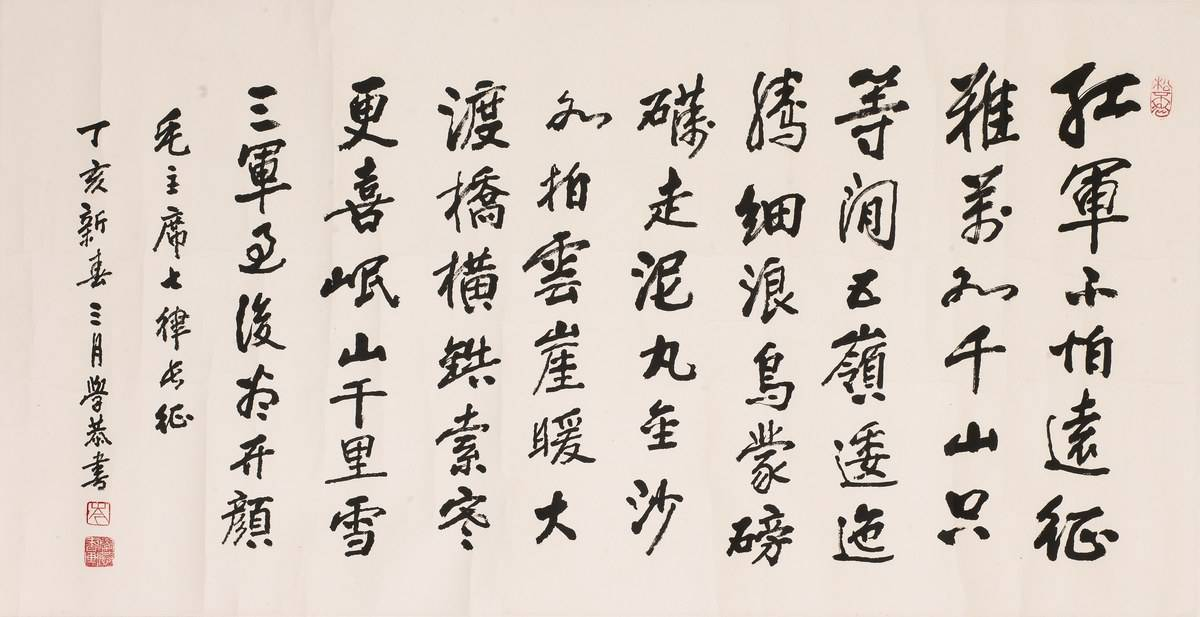 紅軍不怕遠征
難萬水千山只
等閒五嶺逶迤
騰細浪烏蒙磅
礴走泥丸金沙
水拍雲崖暖大
渡橋橫鐵索寒
更喜岷山千里雪
三軍過後盡開顏
毛主席七律長征
丁亥新春三月學恭書